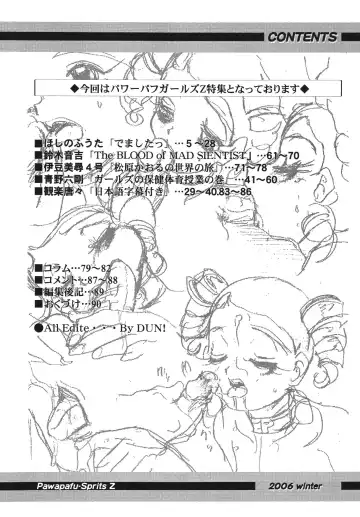 CONTENTS
◆今回はパワーパフガールズZ特集となっております◆
■ほしのふうた「でましたっ」…5～28
■鈴木音吉「The BLOOD of MAD SIENTIST」…61～70
■伊豆美々４号「松原かおるの世界の旅」…71～78
■青野六剛「ガールズの保健体育授業の巻」…41～60
■観楽唐々「日本語字幕付き」…29～40.83～86
■コラム…79～82
■コメント…87～88
■編集後記…89
■おくづけ…90
●All Edite・・・By DUN!
Pawapafu-Sprits Z
2006 winter